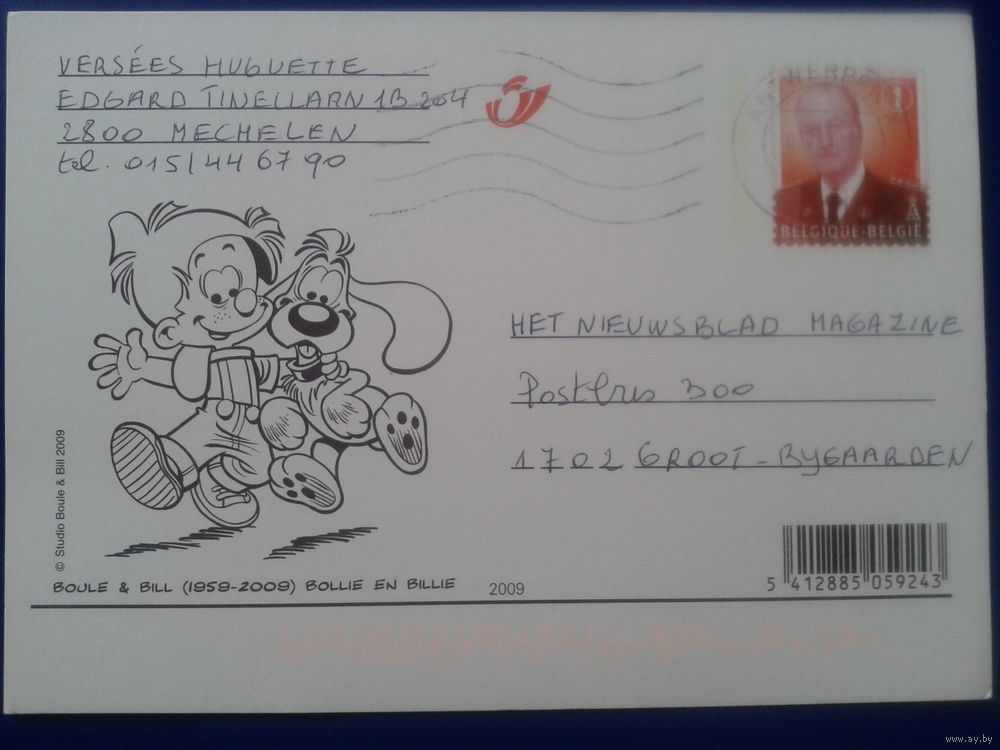 VERSÉES HUGUETTE
EDGARD TINELLAAN 1B 204
2800 MECHELEN
tel. 015/44 67 90
ANTWERPEN
1
A
BELGIQUE-BELGIË
HET NIEUWSBLAD MAGAZINE
Postbus 300
1702 GROOT-BYGAARDEN
© Studio Boule & Bill 2009
BOULE & BILL (1959-2009) BOLLIE EN BILLIE
2009
5 412885 059243
www.ay.by